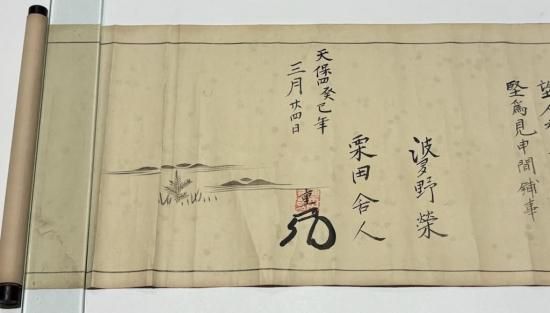 望
堅為見申間鋪事
波多野榮
栗田舎人
天保四癸巳年
三月廿四日